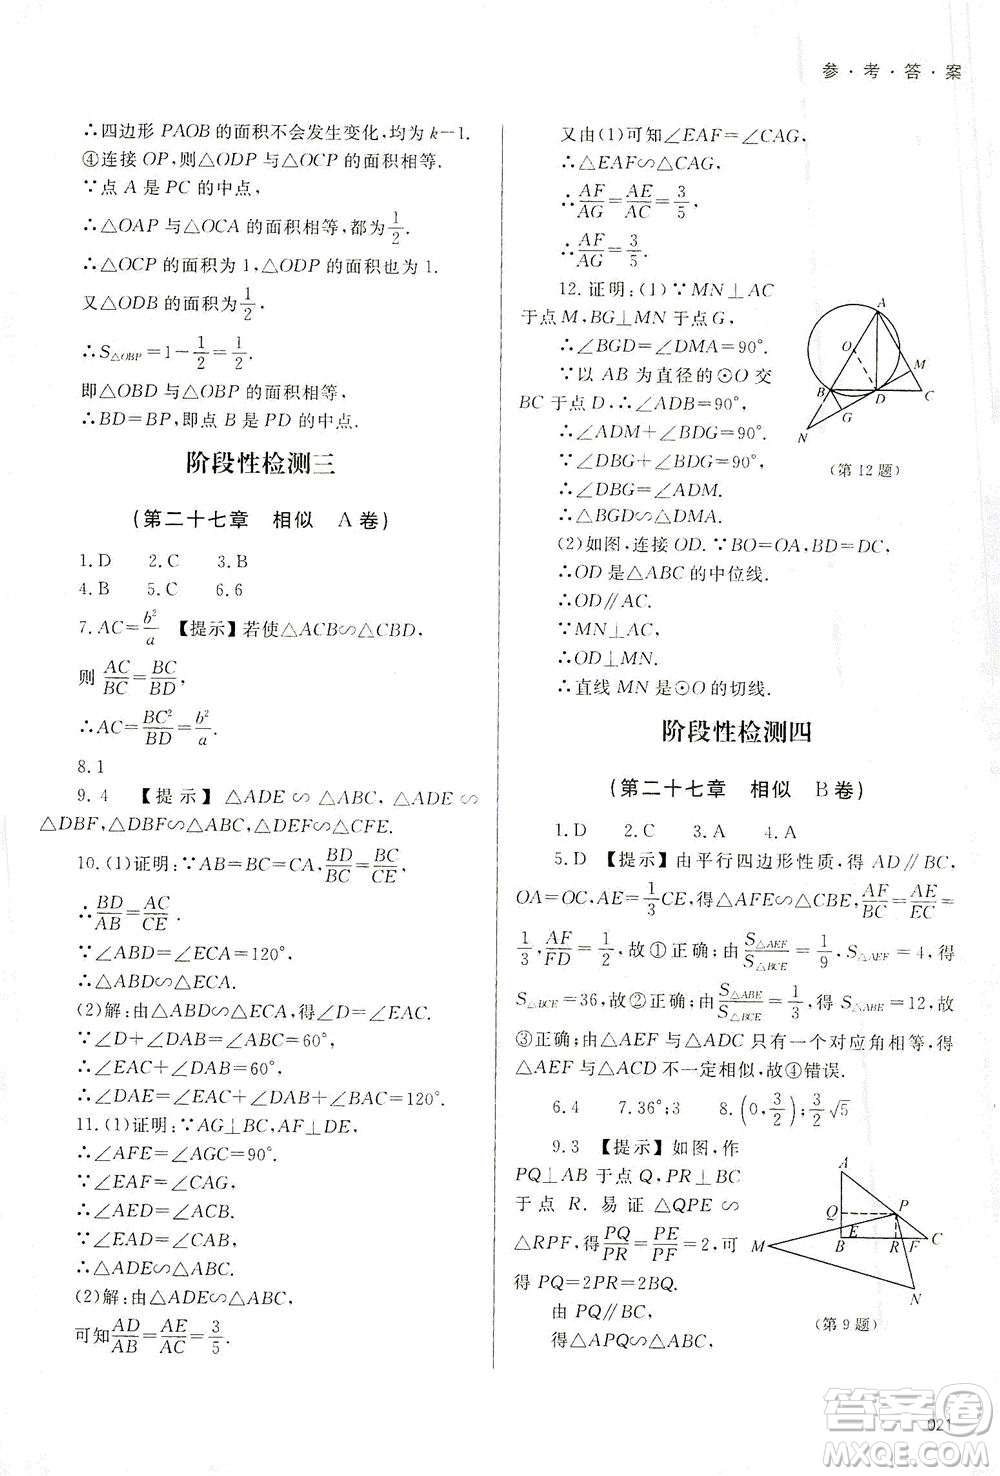 参·考·答·案
∴四边形 PAOB 的面积不会发生变化,均为 k-1.
④连接 OP,则△ODP 与△OCP 的面积相等.
∵点 A 是 PC 的中点,
∴△OAP 与△OCA 的面积相等,都为1/2.
∴△OCP 的面积为 1,△ODP 的面积也为 1.
又△ODB 的面积为1/2,
∴S△OBP=1-1/2=1/2.
即△OBD 与△OBP 的面积相等.
∴BD=BP,即点 B 是 PD 的中点.
阶段性检测三
(第二十七章 相似 A卷)
1.D 2.C 3.B
4.B 5.C 6.6
7.AC=b²/a 【提示】若使△ACB∽△CBD,
则 AC/BC=BC/BD,
∴AC=BC²/BD=b²/a.
8.1
9.4 【提示】△ADE∽△ABC,△ADE∽
△DBF,△DBF∽△ABC,△DEF∽△CFE.
10.(1)证明:∵AB=BC=CA,BD/BC=BC/CE,
∴BD/AB=AC/CE.
∵∠ABD=∠ECA=120°,
∴△ABD∽△ECA.
(2)解:由△ABD∽△ECA,得∠D=∠EAC.
∵∠D+∠DAB=∠ABC=60°,
∴∠EAC+∠DAB=60°,
∴∠DAE=∠EAC+∠DAB+∠BAC=120°.
11.(1)证明:∵AG⊥BC,AF⊥DE,
∴∠AFE=∠AGC=90°.
∵∠EAF=∠CAG,
∴∠AED=∠ACB.
∵∠EAD=∠CAB,
∴△ADE∽△ABC.
(2)解:由△ADE∽△ABC,
可知AD/AB=AE/AC=3/5.
又由(1)可知∠EAF=∠CAG,
∴△EAF∽△CAG,
∴AF/AG=AE/AC=3/5.
∴AF/AG=3/5.
12.证明:(1)∵MN⊥AC
于点M,BG⊥MN于点G,
∴∠BGD=∠DMA=90°.
∵以 AB 为直径的⊙O 交
BC于点 D,∴∠ADB=90°,
∴∠ADM+∠BDG=90°.
∵∠DBG+∠BDG=90°,
∴∠DBG=∠ADM.
∴△BGD∽△DMA.
(2)如图,连接 OD.∵BO=OA,BD=DC,
∴OD是△ABC的中位线.
∴OD∥AC.
∵MN⊥AC,
∴OD⊥MN.
∴直线 MN 是⊙O 的切线.
A
O
M
B
D
C
G
N
(第12题)
阶段性检测四
(第二十七章 相似 B卷)
1.D 2.C 3.A 4.A
5.D 【提示】由平行四边形性质,得 AD∥BC,
OA=OC,AE=1/3CE,得△AFE∽△CBE,AF/BC=AE/EC=
1/3,AF/FD=1/2,故①正确;由S△AEF/S△BCE=1/9,S△AEF=4,得
S△BCE=36,故②正确;由S△ABE/S△BCE=1/3,得S△ABE=12,故
③正确;由△AEF与△ADC只有一个对应角相等,得
△AEF与△ACD不一定相似,故④错误.
6.4 7.36°;3 8.(0,3/2);3/2√5
9.3 【提示】如图,作
PQ⊥AB于点Q,PR⊥BC
于点 R.易证△QPE∽
△RPF,得PQ/PR=PE/PF=2,可
得 PQ=2PR=2BQ.
由 PQ∥BC,
得△APQ∽△ABC,
A
Q
P
E
M
B
R
F
C
N
(第9题)
答案圈
MXQE.COM
021